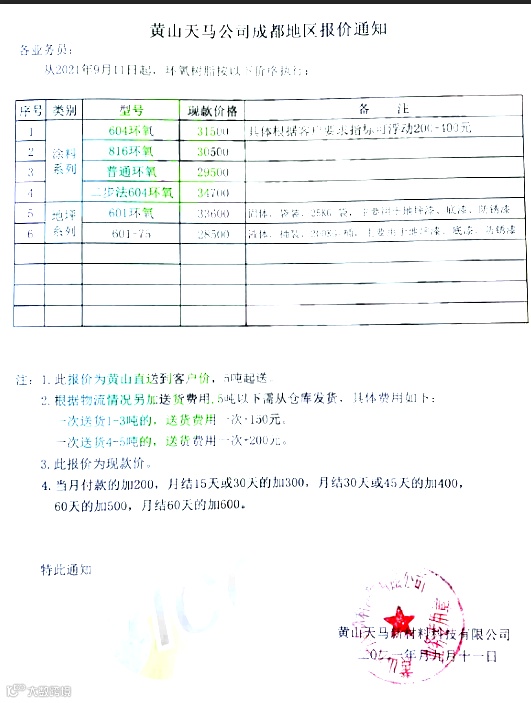 黄山天马公司成都地区报价通知
各业务员:
从2021年9月11日起，环氧树脂按以下价格执行:
序号 类别 型号 现款价格 备 注
1 604环氧 31500 具体根据客户要求指标可浮动200-400元
2 涂料 816环氧 30500
3 系列 普通环氧 29500
4 二步法604环氧 34700
5 地坪 601环氧 33600 固体、袋装、25KG/袋，主要用于地坪漆、底漆、防锈漆
6 系列 601-75 28500 液体、桶装、200KG/桶，主要用于地坪漆、底漆、防锈漆
注: 1.此报价为黄山直送到客户价，5吨起送。
2.根据物流情况另加送货费用,5吨以下需从仓库发货，具体费用如下:
一次送货1-3吨的，送货费用一次+150元。
一次送货4-5吨的，送货费用一次+200元。
3.此报价为现款价。
4.当月付款的加200，月结15天或30天的加300，月结30天或45天的加400，
60天的加500，月结60天的加600。
特此通知
黄山天马新材料科技有限公司
二〇二一年九月十一日